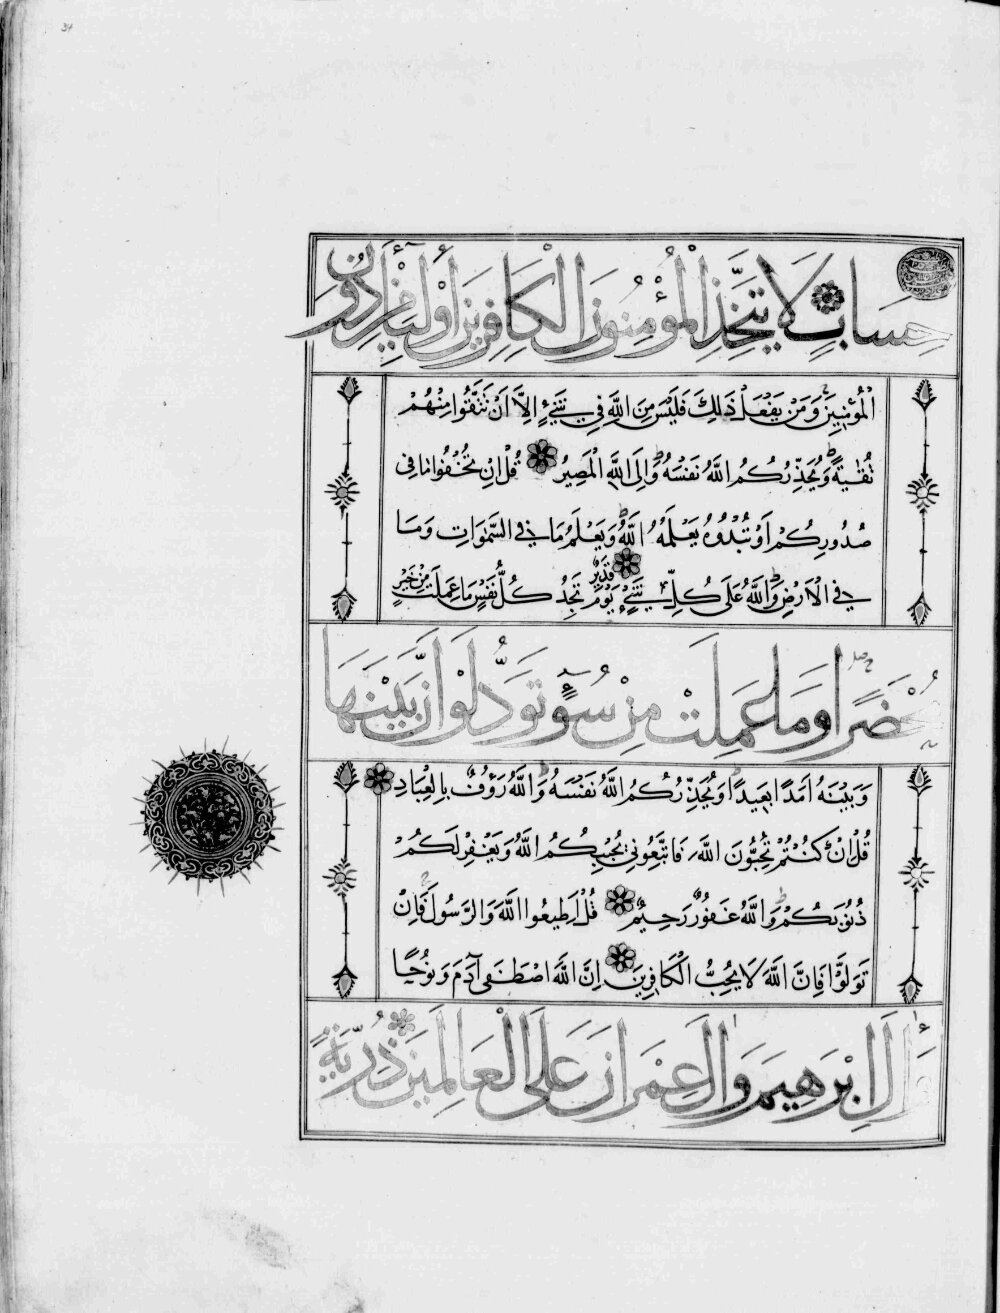 حِسَابٍ لَا يَتَّخِذِ الْمُؤْمِنُونَ الْكَافِرِينَ أَوْلِيَاءَ مِنْ دُونِ
الْمُؤْمِنِينَ وَمَنْ يَفْعَلْ ذَلِكَ فَلَيْسَ مِنَ اللَّهِ فِي شَيْءٍ إِلَّا أَنْ تَتَّقُوا مِنْهُمْ
تُقٰيةً وَيُحَذِّرُكُمُ اللَّهُ نَفْسَهُ وَإِلَى اللَّهِ الْمَصِيرُ قُلْ إِنْ تُخْفُوا مَا فِي
صُدُورِكُمْ أَوْ تُبْدُوهُ يَعْلَمْهُ اللَّهُ وَيَعْلَمُ مَا فِي السَّمٰوَاتِ وَمَا
فِي الْأَرْضِ وَاللَّهُ عَلَى كُلِّ شَيْءٍ قَدِيرٌ يَوْمَ تَجِدُ كُلُّ نَفْسٍ مَا عَمِلَتْ مِنْ خَيْرٍ
مُحْضَرًا وَمَا عَمِلَتْ مِنْ سُوءٍ تَوَدُّ لَوْ أَنَّ بَيْنَهَا
وَبَيْنَهُ أَمَدًا بَعِيدًا وَيُحَذِّرُكُمُ اللَّهُ نَفْسَهُ وَاللَّهُ رَؤُفٌ بِالْعِبَادِ
قُلْ إِنْ كُنْتُمْ تُحِبُّونَ اللَّهَ فَاتَّبِعُونِي يُحْبِبْكُمُ اللَّهُ وَيَغْفِرْ لَكُمْ
ذُنُوبَكُمْ وَاللَّهُ غَفُورٌ رَحِيمٌ قُلْ أَطِيعُوا اللَّهَ وَالرَّسُولَ فَإِنْ
تَوَلَّوْا فَإِنَّ اللَّهَ لَا يُحِبُّ الْكَافِرِينَ إِنَّ اللَّهَ اصْطَفَى آدَمَ وَنُوحًا
وَآلَ إِبْرَهِيمَ وَآلَ عِمْرَانَ عَلَى الْعَالَمِينَ ذُرِّيَّةً